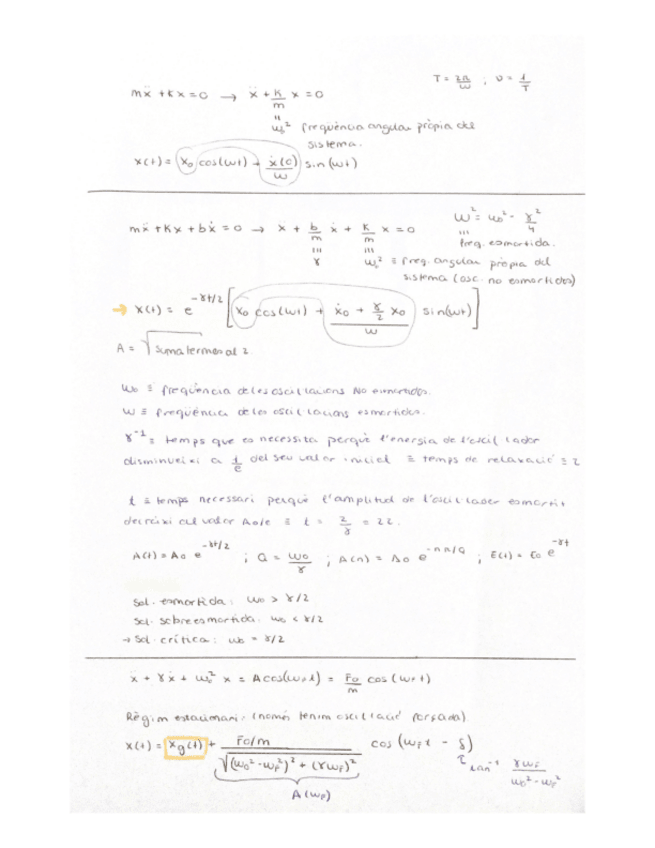 T = 2π/ω ; υ = 1/T
mẍ + kx = 0 → ẍ + k/m x = 0
ω₀² freqüència angular pròpia del
sistema.
x(t) = x₀ cos(ωt) + ẋ(0)/ω sin(ωt)
mẍ + Kx + bẋ = 0 → ẍ + b/m ẋ + k/m x = 0
ω² = ω₀² - γ²/4
≡ freq. esmortida.
γ ω₀² ≡ freq. angular pròpia del
sistema (osc. no esmortides)
→ x(t) = e^(-γt/2) [x₀ cos(ωt) + (ẋ₀ + γ/2 x₀)/ω sin(ωt)]
A = √(suma termes al 2
ω₀ ≡ freqüència de les oscil·lacions No esmortides.
ω ≡ freqüència de les oscil·lacions esmortides.
γ⁻¹ ≡ temps que es necessita perquè l'energia de l'oscil·lador
disminueixi a 1/e del seu valor inicial ≡ temps de relaxació ≡ τ
t ≡ temps necessari perquè l'amplitud de l'oscil·lador esmortit
decreixi al valor A₀/e ≡ t = 2/γ = 2τ.
A(t) = A₀ e^(-γt/2) ; Q = ω₀/γ ; A(n) = A₀ e^(-nπ/Q) ; E(t) = E₀ e^(-γt)
Sol. esmortida: ω₀ > γ/2
Sol. sobreesmortida: ω₀ < γ/2
→ Sol. crítica: ω₀ = γ/2
ẍ + γẋ + ω₀² x = A cos(ω_F t) = F₀/m cos(ω_F t)
Règim estacionari: (només tenim oscil·lació forçada)
x(t) = x_g(t) + (F₀/m)/√((ω₀² - ω_F²)² + (γω_F)²) cos(ω_F t - δ)
tan⁻¹ γω_F/(ω₀² - ω_F²)
A(ω_F)